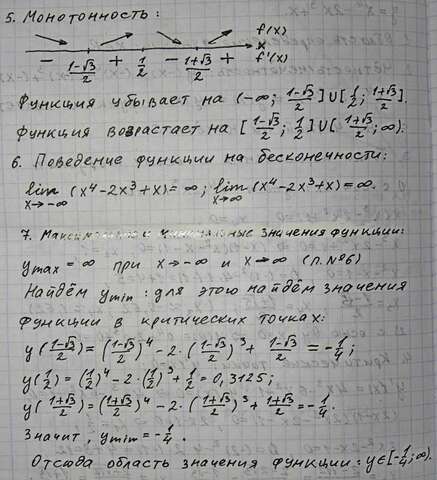 5. Монотонность:
f(x)
x
− (1-√3)/2 + 1/2 − (1+√3)/2 + f'(x)
Функция убывает на (-∞; (1-√3)/2] U [1/2; (1+√3)/2].
Функция возрастает на [(1-√3)/2; 1/2] U [(1+√3)/2; ∞).
6. Поведение функции на бесконечности:
lim x→-∞ (x⁴-2x³+x) = ∞; lim x→∞ (x⁴-2x³+x) = ∞.
7. Максимальные и минимальные значения функции:
y max = ∞ при x→-∞ и x→∞ (п.№6)
Найдём y min: для этого найдём значения
функции в критических точках:
y((1-√3)/2) = ((1-√3)/2)⁴ - 2·((1-√3)/2)³ + (1-√3)/2 = -1/4;
y(1/2) = (1/2)⁴ - 2·(1/2)³ + 1/2 = 0,3125;
y((1+√3)/2) = ((1+√3)/2)⁴ - 2·((1+√3)/2)³ + (1+√3)/2 = -1/4.
Значит, y min = -1/4.
Отсюда область значения функции: y∈[-1/4; ∞).